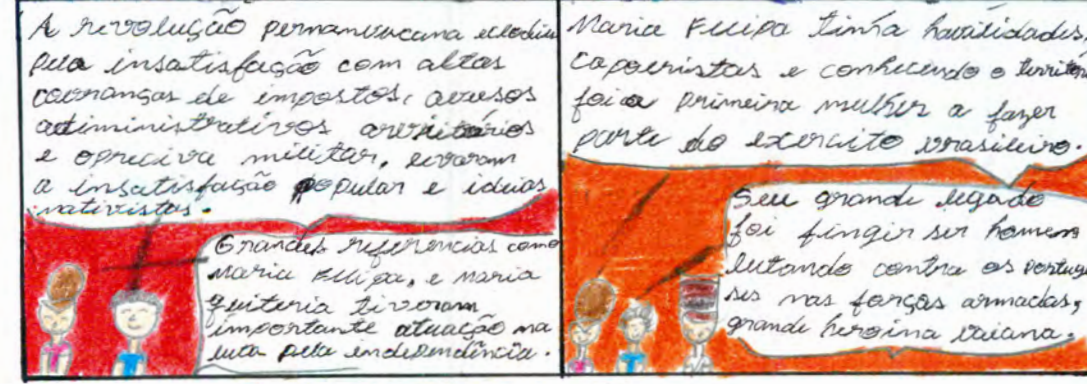 A revolução pernambucana eclodiu
pela insatisfação com altas
cobranças de impostos, abusos
administrativos arbitrários
e opreciva militar, levaram
a insatisfação popular e ideias
nativistas.
Grandes referencias como
Maria Felipa, e maria
quiteria tiveram
importante atuação na
luta pela independência.
Maria Felipa tinha habilidades,
capoeristas e conhecendo o
foi a primeira mulher a fazer
parte do exercito brasileiro.
Seu grande legado
foi fingir ser homem
lutando contra os
nas forças armadas,
grande heroina baiana.